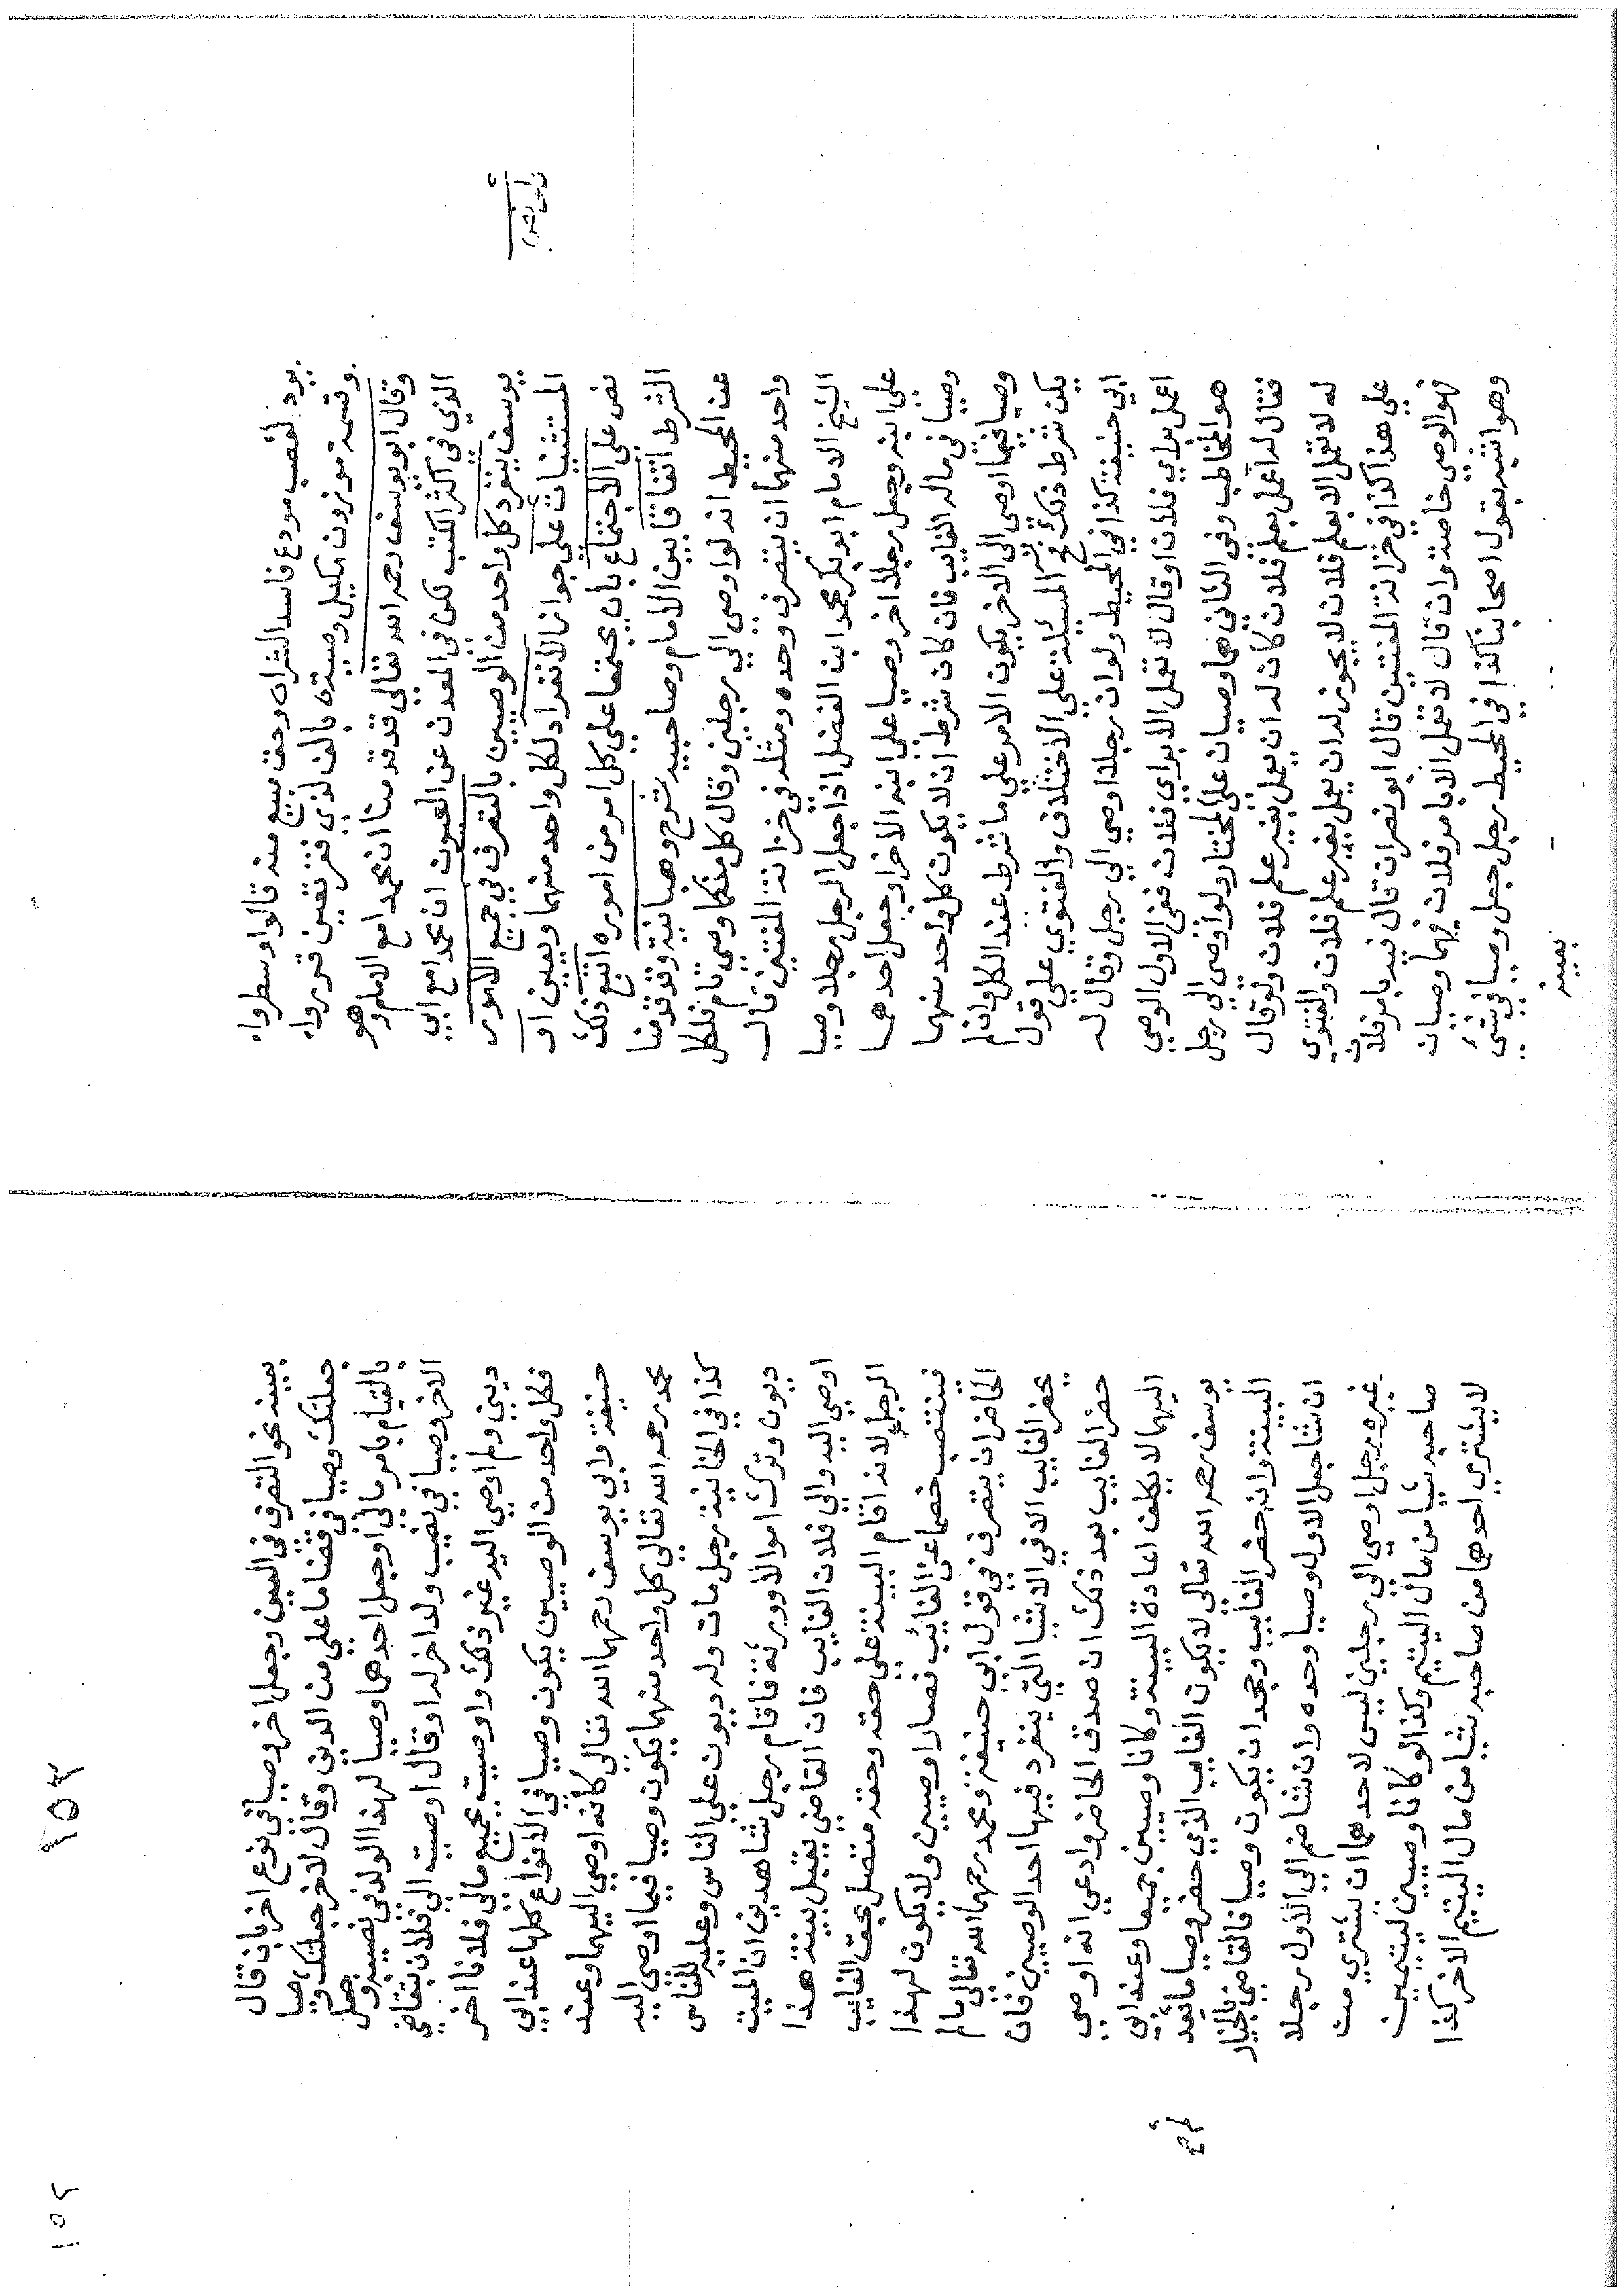 يرد لغصب مودع فاسد الشراء وحق مبيع منه قالوا وسطروا
وقسمة موزون مكيل وصيته بالف لذي فقر تعين قرروا
وقال ابو يوسف رحمه الله تعالى قد قدمنا ان محمدا مع الامام وهو
الذي في اكثر الكتب لكن في المعدن عن العيون ان محمدا مع ابي
يوسف ينفرد كل واحد من الوصيين بالتصرف في جميع الامور
المستثنيات على جواز الانفراد لكل واحد منهما ويعين او
نص على الاجتماع بان يجتمعا على كل امر من اموره اتبع ذلك
الشرط اتفاقا بين الامام وصاحبيه شرح وهبانية وقد قدمنا
عن المحيط انه لو اوصي الي رجلين وقال كل منكما وصي تام فلكل
واحد منهما ان يتصرف وحده ومثله في خزانة المفتين قال
الشيخ الامام ابو بكر محمد ابن الفضل اذا جعل الرجل رجلا وصيا
علي ابنه وجعل رجلا اخر وصيا علي ابنه الاخر او جعل احدهما
وصيا في ماله الغايب فان كان شرط ان لا يكون كل واحد منهما
وصيا فيما اوصي الي الاخر يكون الامر علي ما شرط عند الكل وان لم
يكن شرط ذلك المسئلة علي الاختلاف والفتوي علي قول
ابي حنيفة كذا في المحيط ولو ان رجلا اوصي الي رجل وقال له
اعمل براي فلان او قال لا تعمل الا براي فلان ففي الاول الوصي
هو المخاطب وفي الثاني هما وصيان علي المختار ولو اوصي الي رجل
فقال له اعمل بعلم فلان كان له ان يعمل بغير علم فلان ولو قال
له لا تعمل الا بعلم فلان لا يجوز له ان يعمل بغير علم فلان والفتوي
علي هذا كذا في خزانة المفتين قال ابو نصر ان قال فيه بامر فلان
فهو الوصي خاصة وان قال لا تعمل الا بامر فلان فهما وصيان
وهو اشبه بقول اصحابنا كذا في المحيط رجل جعل وصيا في شي
بعينه
بعينه نحو التصرف في العين وجعل اخر وصيا في نوع اخر بان قال
جعلتك وصيا في قضا ما علي من الدين وقال لاخر جعلتك وصيا
بالقيام بامر مالي او جعل احدهما وصيا لهذا الولد في نصيبه وجعل
الاخر وصيا في نصيب ولد اخر له او قال اوصيت الي فلان بتقاضي
ديني ولم اوصي اليه غير ذلك واوصيت بجميع مالي فلانا اخر
فكل واحد من الوصيين يكون وصيا في الانواع كلها عند ابي
حنيفة وابي يوسف رحمهما الله تعالي كانه اوصي اليهما وعند
محمد رحمه الله تعالي كل واحد منهما يكون وصيا فيما اوصي اليه
كذا في الخانية رجل مات وله ديون علي الناس وعليه للناس
ديون وترك اموالا وورثة فاقام رجل شاهدين ان الميت
اوصي اليه والي فلان الغايب فان القاضي يقبل بينة هذا
الرجل لانه اقام البينة علي حقه وحقه متصل بحق الغايب
فينتصب خصما عن الغائب فصارا وصيين ولا يكون لهذا
الحاضر ان يتصرف في قول ابي حنيفة ومحمد رحمهما الله تعالي ما لم
يحضر الغايب الا في الاشيا التي ينفرد فيها احد الوصيين فان
حضر الغايب بعد ذلك ان صدق الحاضر وادعي انه اوصي
اليهما لا يكلف اعادة البينة وكانا وصيين جميعا وعند ابي
يوسف رحمه الله تعالي لا يكون الغايب الذي حضر وصيا ما لم يعد
البينة وان حضر الغايب وجحد ان يكون وصيا فالقاضي بالخيار
ان شا جعل الاول وصيا وحده وان شا ضم الي الاول رجلا
غيره رجل اوصي الي رجلين ليس لاحدهما ان يشتري من
صاحبه شيا من مال اليتيم وكذا لو كانا وصيين ليتيمين
لا يشتري احدهما من صاحبه شيا من مال اليتيم الاخر كذا
١٥٢